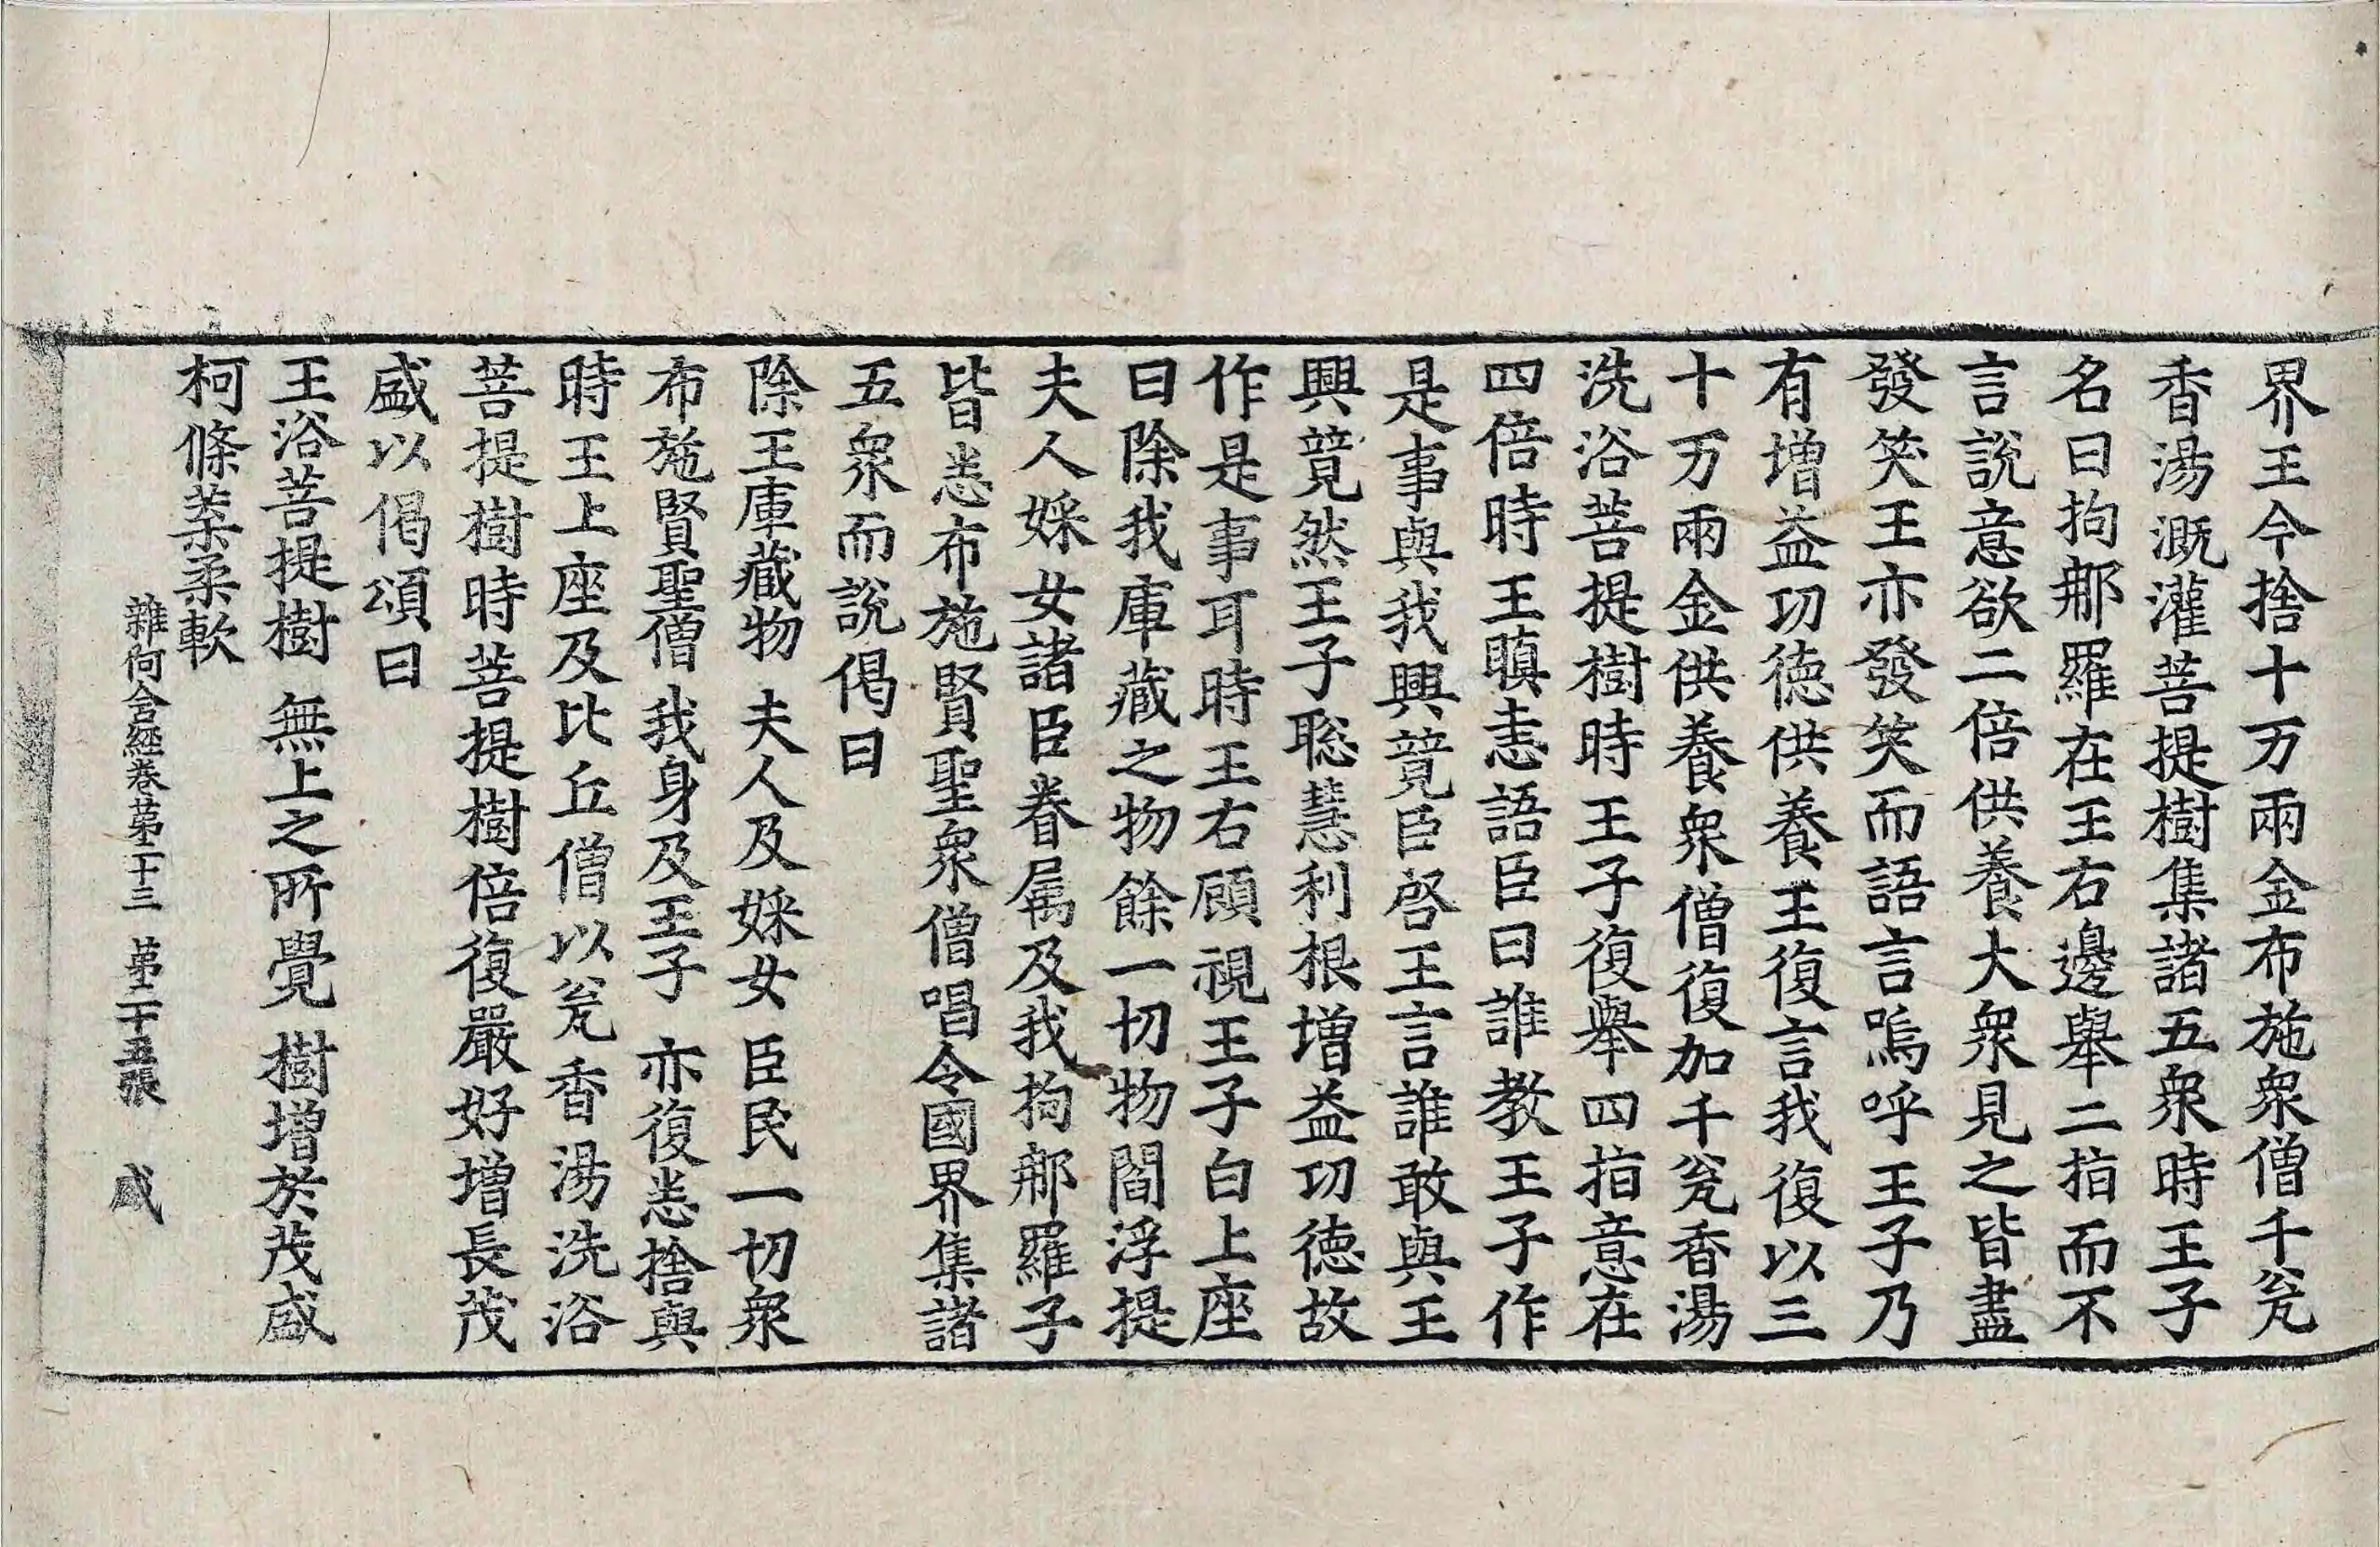 界王今捨十万兩金布施衆僧千瓮
香湯溉灌菩提樹集諸五衆時王子
名曰拘郍羅在王右邊舉二指而不
言說意欲二倍供養大衆見之皆盡
發笑王亦發笑而語言嗚呼王子乃
有增益功德供養王復言我復以三
十万兩金供養衆僧復加千瓮香湯
洗浴菩提樹時王子復舉四指意在
四倍時王瞋恚語臣曰誰教王子作
是事與我興競臣啓王言誰敢與王
興競然王子聡慧利根增益功德故
作是事耳時王右顧視王子白上座
曰除我庫藏之物餘一切物閻浮提
夫人婇女諸臣眷属及我拘郍羅子
皆悉布施賢聖衆僧唱令國界集諸
五衆而說偈曰
除王庫藏物 夫人及婇女 臣民一切衆
布施賢聖僧 我身及王子 亦復悉捨與
時王上座及比丘僧以瓮香湯洗浴
菩提樹時菩提樹倍復嚴好增長茂
盛以偈頌曰
王浴菩提樹 無上之所覺 樹增於茂盛
柯條葉柔軟
雜阿含經卷第二十三 第二十五張 盛